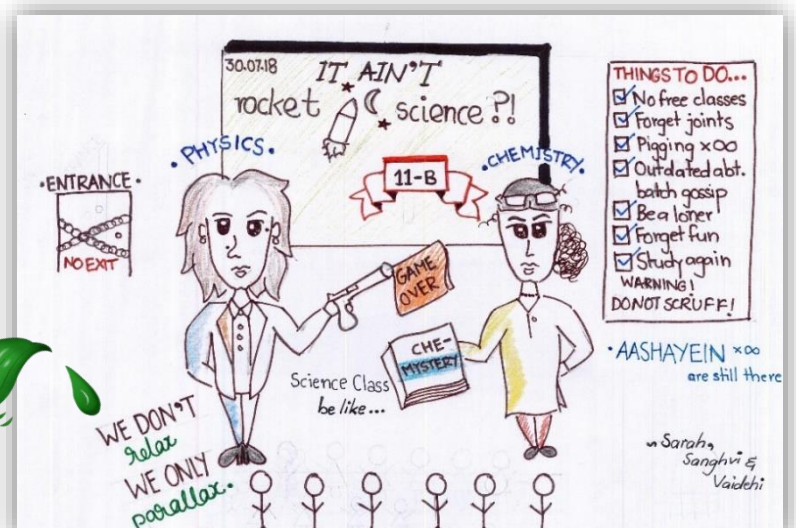 30.07.18
IT AIN'T
rocket science?!
• PHYSICS •
• CHEMISTRY •
11-B
• ENTRANCE •
NO EXIT
GAME
OVER
CHE-
MYSTERY
Science Class
be like...
WE DON'T
relax
WE ONLY
parallax.
THINGS TO DO...
No free classes
Forget joints
Pigging x∞
Outdated abt.
batch gossip
Be a loner
Forget fun
Study again
WARNING!
DO NOT SCRUFF!
• AASHAYEIN x∞
are still there
~ Sarah,
Sanghvi &
Vaidehi